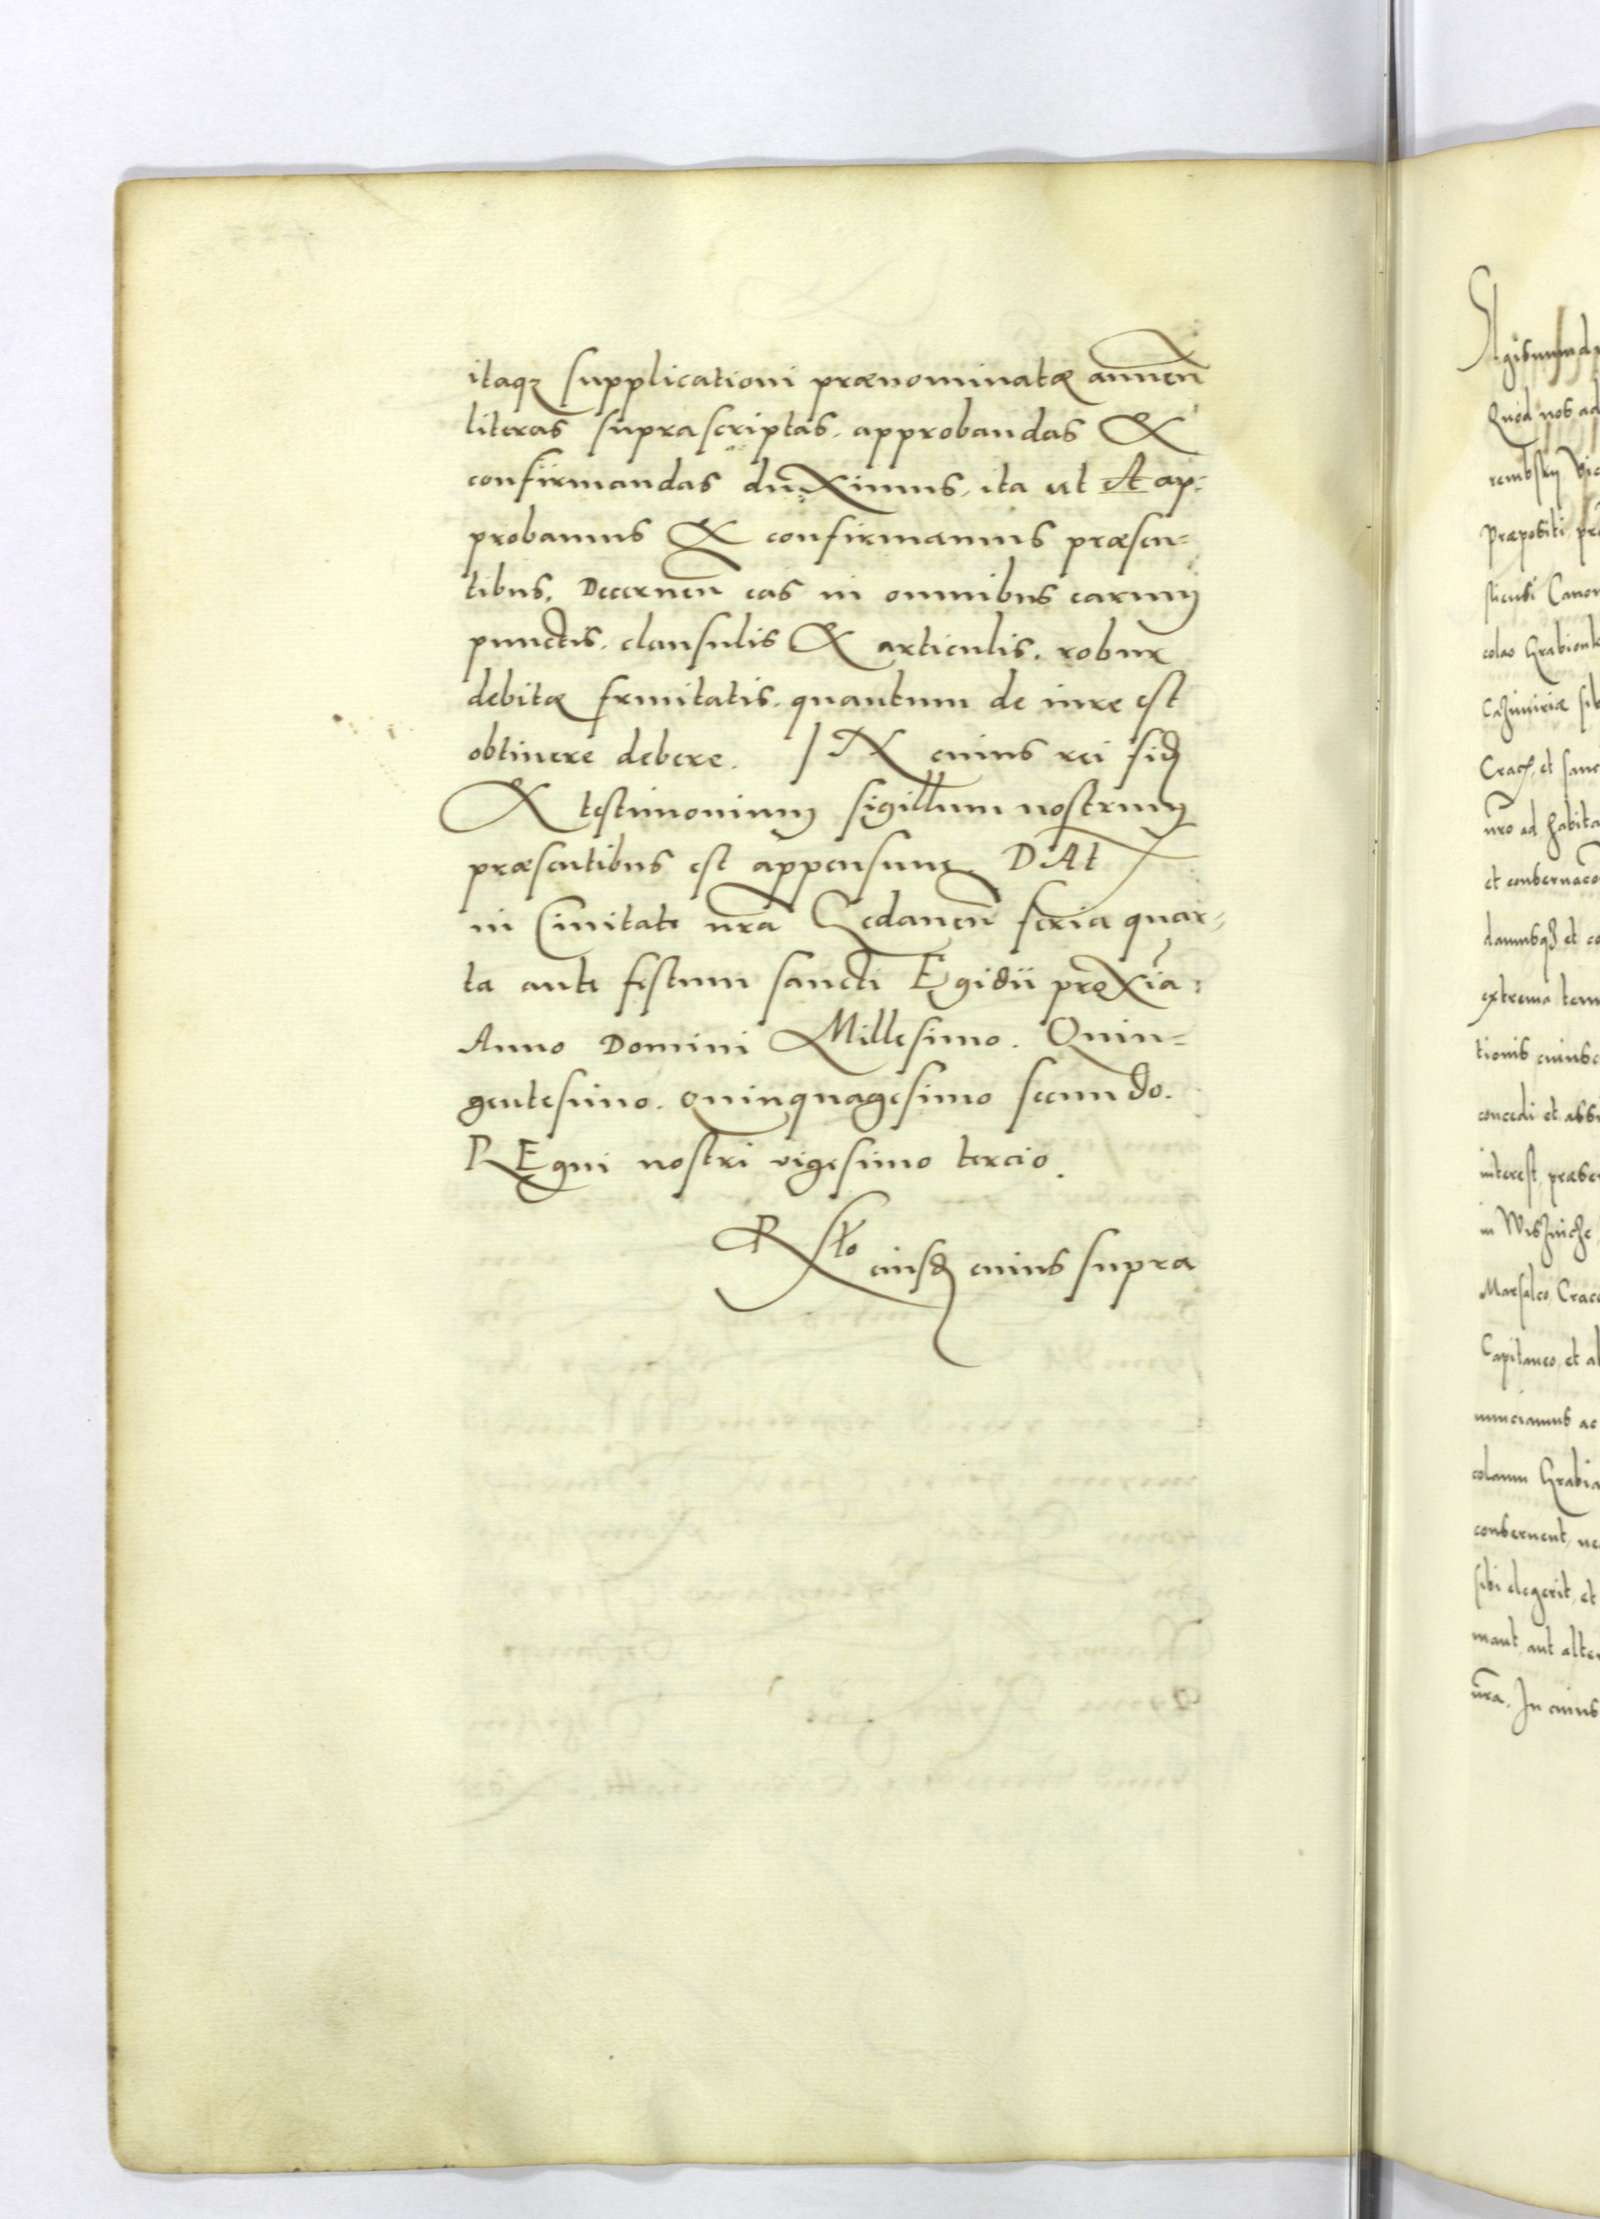 itaqꝫ supplicationi prænominatæ annueñ
literas suprascriptas, approbandas &
confirmandas duximus, ita ut et ap:
probamus & confirmamus præsen=
tibus. Decerneñ eas in omnibus earum
punctis, clausulis & articulis, robur
debitæ frmitatis, quantum de iure est
obtinere debere. IN cuius rei fid
& testimonium sigillum nostrum
præsentibus est appensum. DAt
in Civitate nrã Gedaneñ feria quar=
ta ante festum sancti Egidii proxiã:
Anno Domini Millesimo. Quin=
gentesimo. quinquagesimo secundo.
REgni nostri vigesimo tercio.
Rło eiusd cuius supra
Quod nos ad
Præpositi
sticusi Canon
colao Grabionk
Cazimiriæ sib
Crac, et sanc
nrõ ad habita
et conservaco
damusqꝫ et co
extrema tem
tionis cuiusc
concedi et assi
interest, præsen
in Wisznicze
Marsalco, Craco
Capitaneo, et al
nunciamus ac
colaum Grabia
conservent, ne
sibi elegerit, et
mant, aut alter
nrã. In cuius